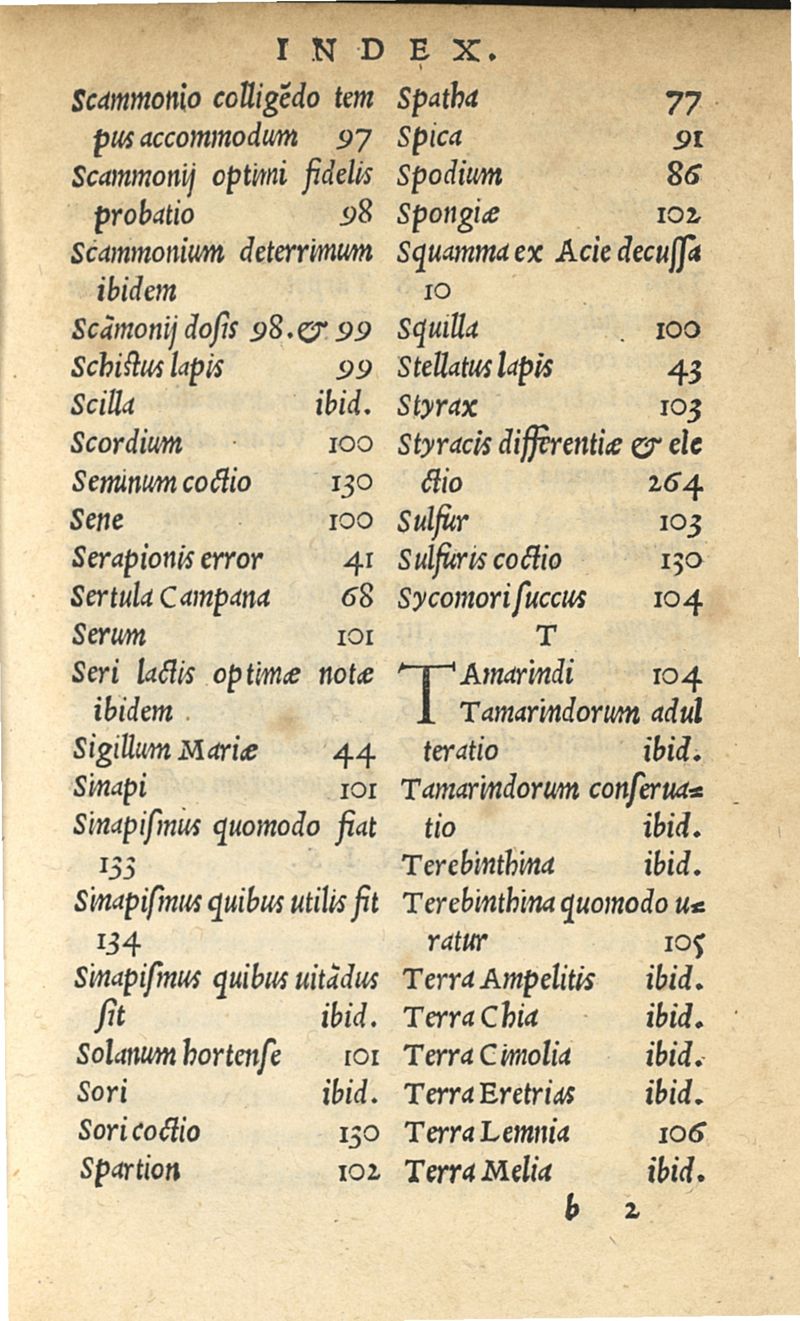 INDEX.
Scammonio colligẽdo tem
pus accommodum 97
Scammonij optimi fidelis
probatio 98
Scammonium deterrimum
ibidem
Scãmonij dosis 98. & 99
Schistus lapis 99
Scilla ibid.
Scordium 100
Seminum coctio 130
Sene 100
Serapionis error 41
Sertula Campana 68
Serum 101
Seri lactis optimæ notæ
ibidem
Sigillum Mariæ 44
Sinapi 101
Sinapiſmus quomodo fiat
133
Sinapiſmus quibus utilis ſit
134
Sinapiſmus quibus uitãdus
ſit ibid.
Solanum hortenſe 101
Sori ibid.
Sori coctio 130
Spartion 102
Spatha 77
Spica 91
Spodium 86
Spongiæ 102
Squamma ex Acie decuſſa
10
Squilla 100
Stellatus lapis 43
Styrax 103
Styracis differentiæ & ele
ctio 264
Sulfur 103
Sulfuris coctio 130
Sycomori ſuccus 104
T
TAmarindi 104
Tamarindorum adul
teratio ibid.
Tamarindorum conſerua-
tio ibid.
Terebinthina ibid.
Terebinthina quomodo u-
ratur 105
Terra Ampelitis ibid.
Terra Chia ibid.
Terra Cimolia ibid.
Terra Eretrias ibid.
Terra Lemnia 106
Terra Melia ibid.
b 2